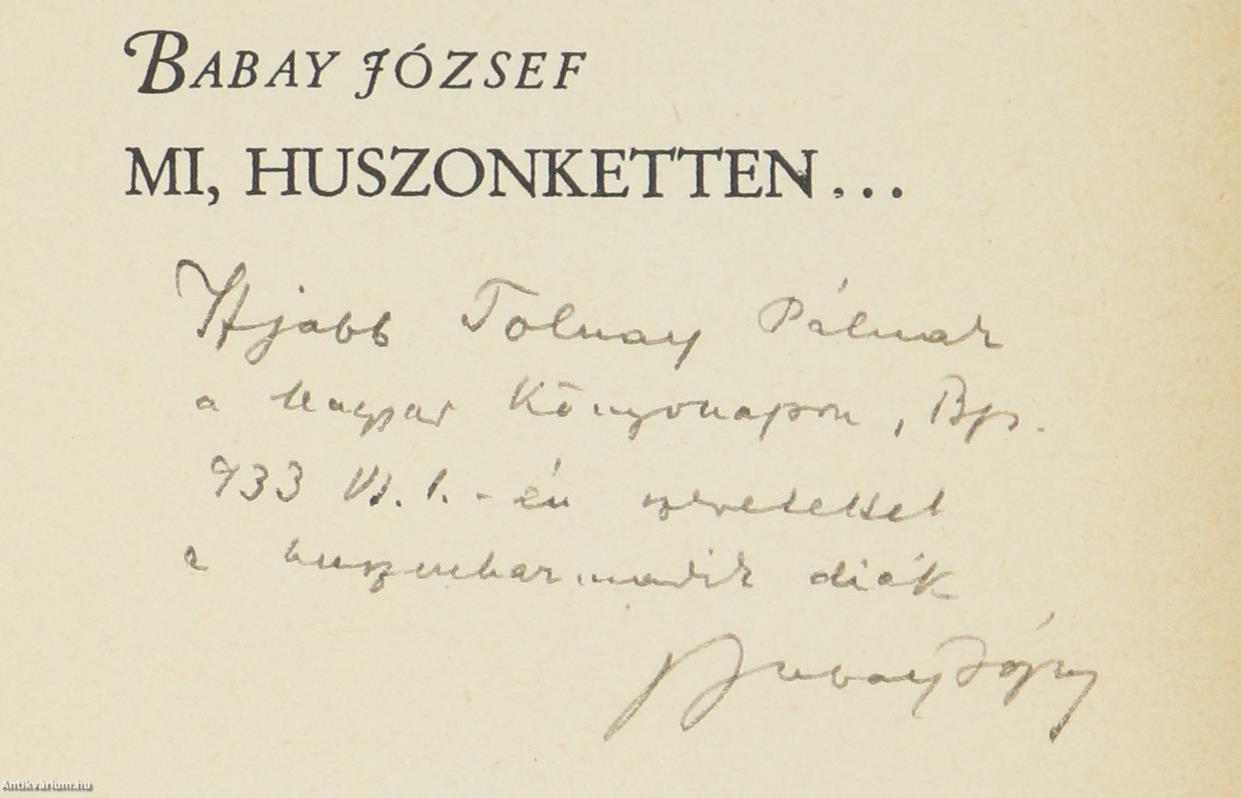 BABAY JÓZSEF
MI, HUSZONKETTEN...
Ifjabb Tolnay Pálnak
a Magyar Könyvnapon, Bp.
933 VI. 1.-én szeretettel
a huszonharmadik diák
Babay József
Antikvárium.hu